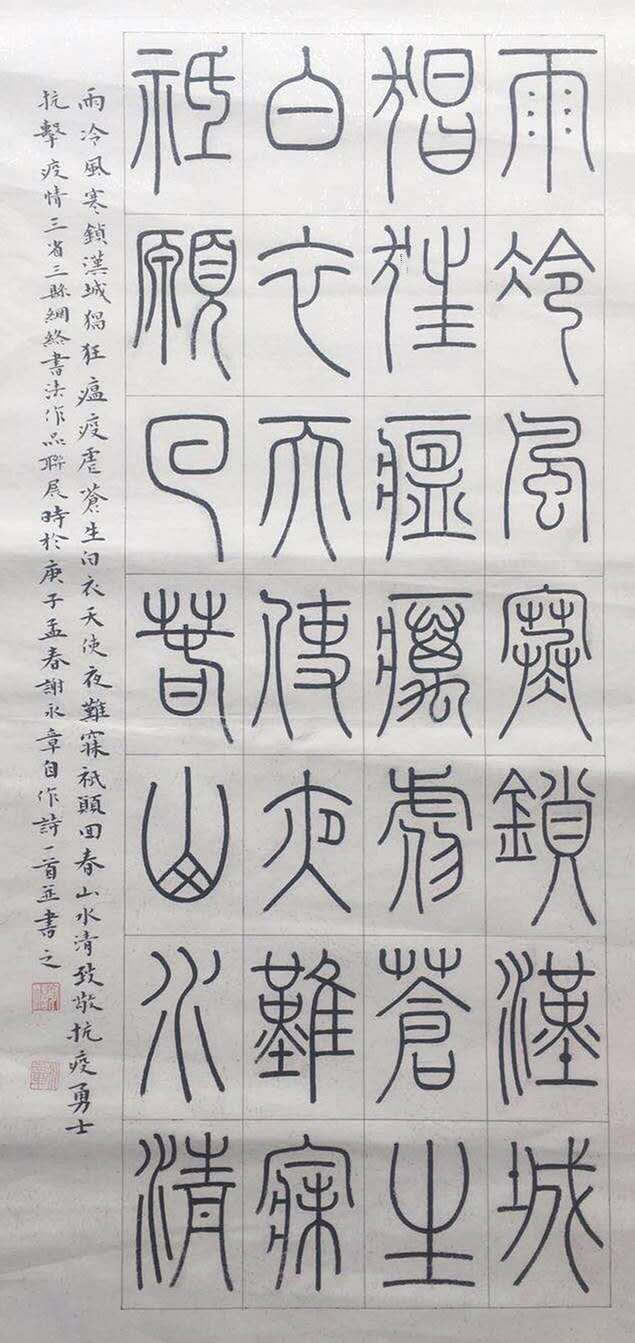 雨冷風寒鎖漢城
猖狂瘟癘虐蒼生
白衣天使夜難寐
祗願回春山水清
雨冷風寒鎖漢城猖狂瘟疫虐蒼生白衣天使夜難寐祇願回春山水清致敬抗疫勇士
抗擊疫情三省三縣網絡書法作品聯展時於庚子孟春謝永章自作詩一首並書之